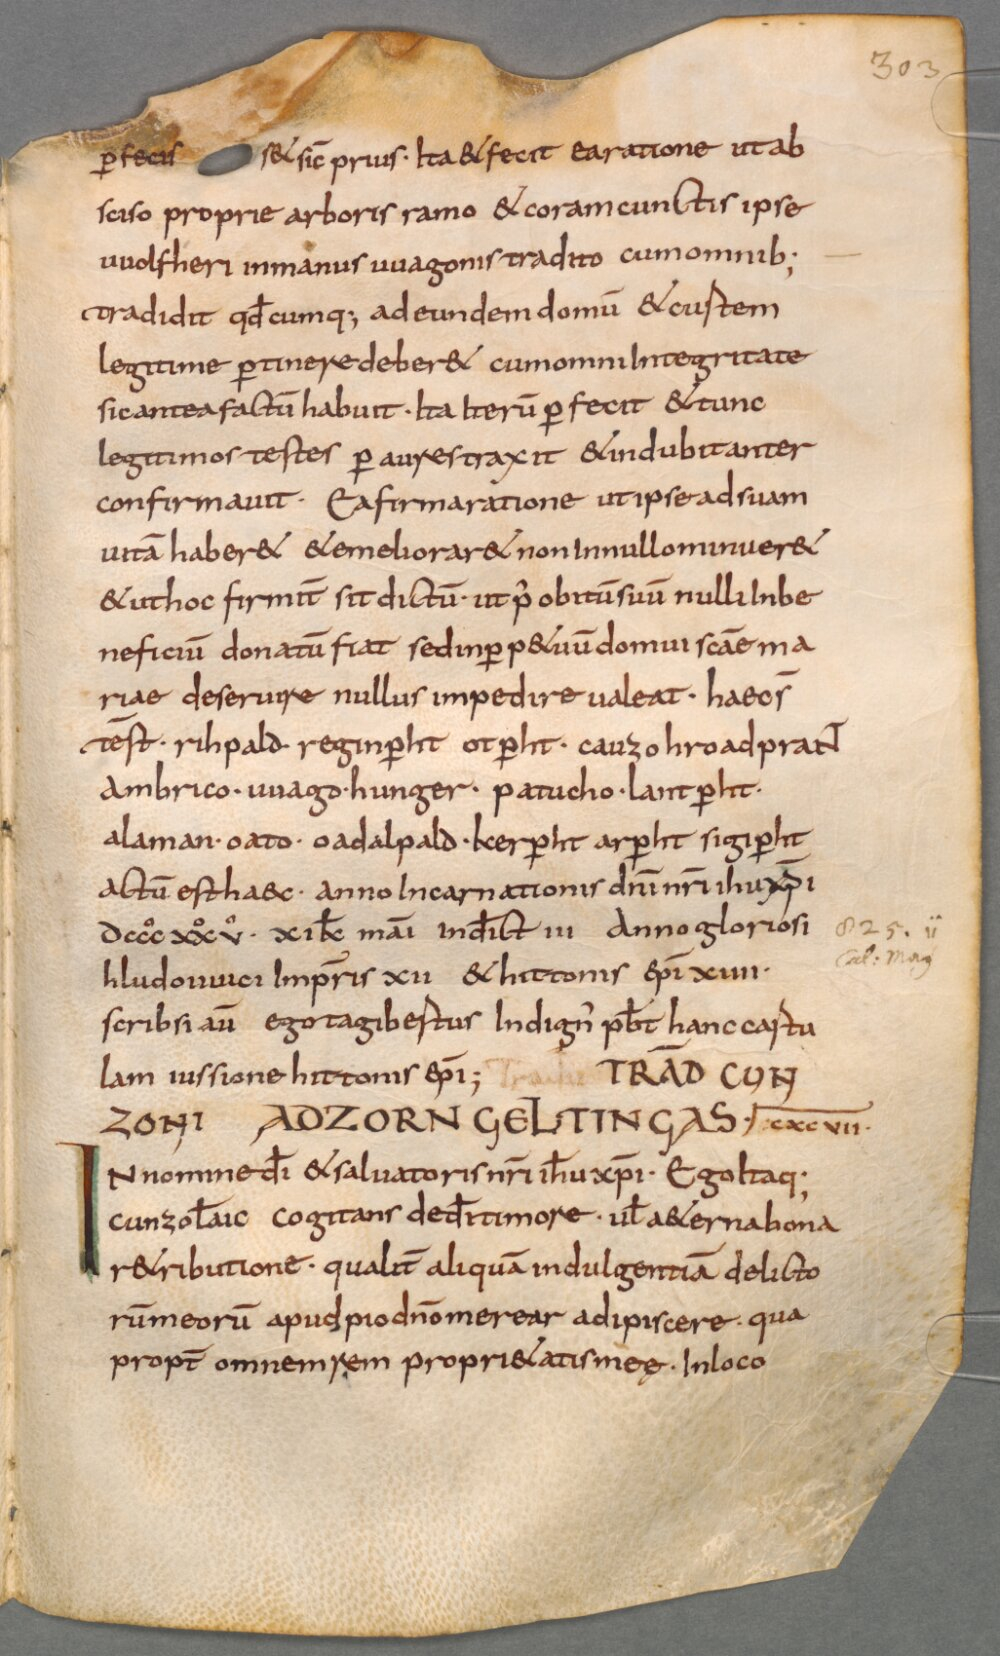 303
p̄fecis s& sic̄ prius· Ita & fecit ea ratione ut ab
sciso proprie arboris ramo & coram cunctis ipse
uuolfheri in manus uuagonis tradito cum omnib;
tradidit qd̄cumq; ad eundem domū & custem
legitime p̄tinere deber& cum omni Integritate
sic antea factū habuit· Ita Iterū p̄fecit & tunc
legitimos testes p̄ aures traxit & indubitanter
confirmauit· Ea firma ratione ut ipse ad suam
uitā haber& & emeliorar& non In nullo minuer&
& ut hoc firmit̄ sit dictū· ut p̄ obitū suū nulli In be
neficiū donatū fiat sed in p̄p&uū domui scāe ma
riae deseruire nullus impedire ualeat· haec s̄
tēst· rihpald· reginp̄ht otp̄ht· cauzo hroadprant
Ambrico· uuago· hunger· patucho· lantp̄ht·
alaman· oato· oadalpald· kerp̄ht arp̄ht sigip̄ht
actū est haec· anno Incarnationis dn̄i nr̄i ihu xp̄i
dccc xx v· xi k̄ mai ind̄ict iii Anno gloriosi
825. ii
Cal: May
hludouuici Imp̄ris xii & hittonis ep̄i xiiii·
scribsi aū ego tagibertus Indign̄ pb̄t hanc cartu
lam iussione hittonis ep̄i; TRĀD CUN
ZONI AD ZORNGELTINGAS· cxcvii·
IN nomine dī & saluatoris nr̄i ih̄u xp̄i· Ego Itaq;
cunzo l̄aic cogitans de d̄i timore· ul̄ a&erna bona
r&ributione· qualit̄ aliquā indulgentiā delicto
rū meorū apud pio dn̄o merear adipiscere· qua
propt̄ omnem rem propri&atis meę· In loco